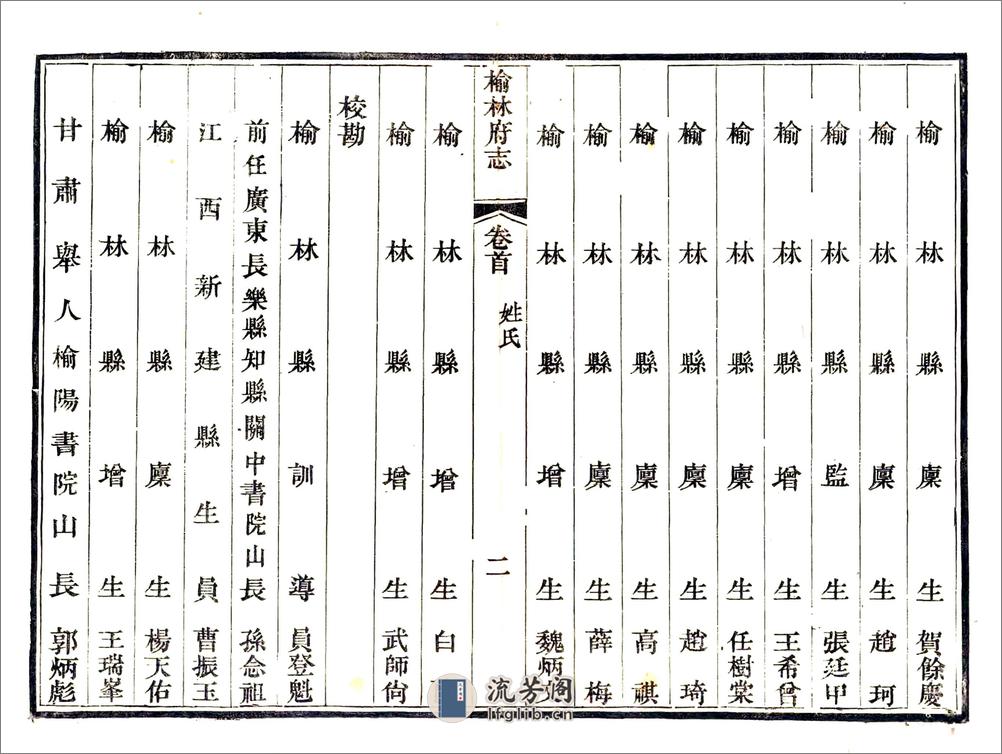 榆林縣廩生賀餘慶
榆林縣廩生趙珂
榆林縣監生張廷甲
榆林縣增生王希曾
榆林縣廩生任樹棠
榆林縣廩生趙琦
榆林縣廩生高祺
榆林縣廩生薛梅
榆林縣增生魏炳
榆林府志
卷首
姓氏
二
榆林縣增生白
榆林縣增生武師尙
校勘
榆林縣訓導員登魁
前任廣東長樂縣知縣關中書院山長孫念祖
江西新建縣生員曹振玉
榆林縣廩生楊天佑
榆林縣增生王瑞峯
甘肅舉人榆陽書院山長郭炳彪
流芳阁
lfglib.cn